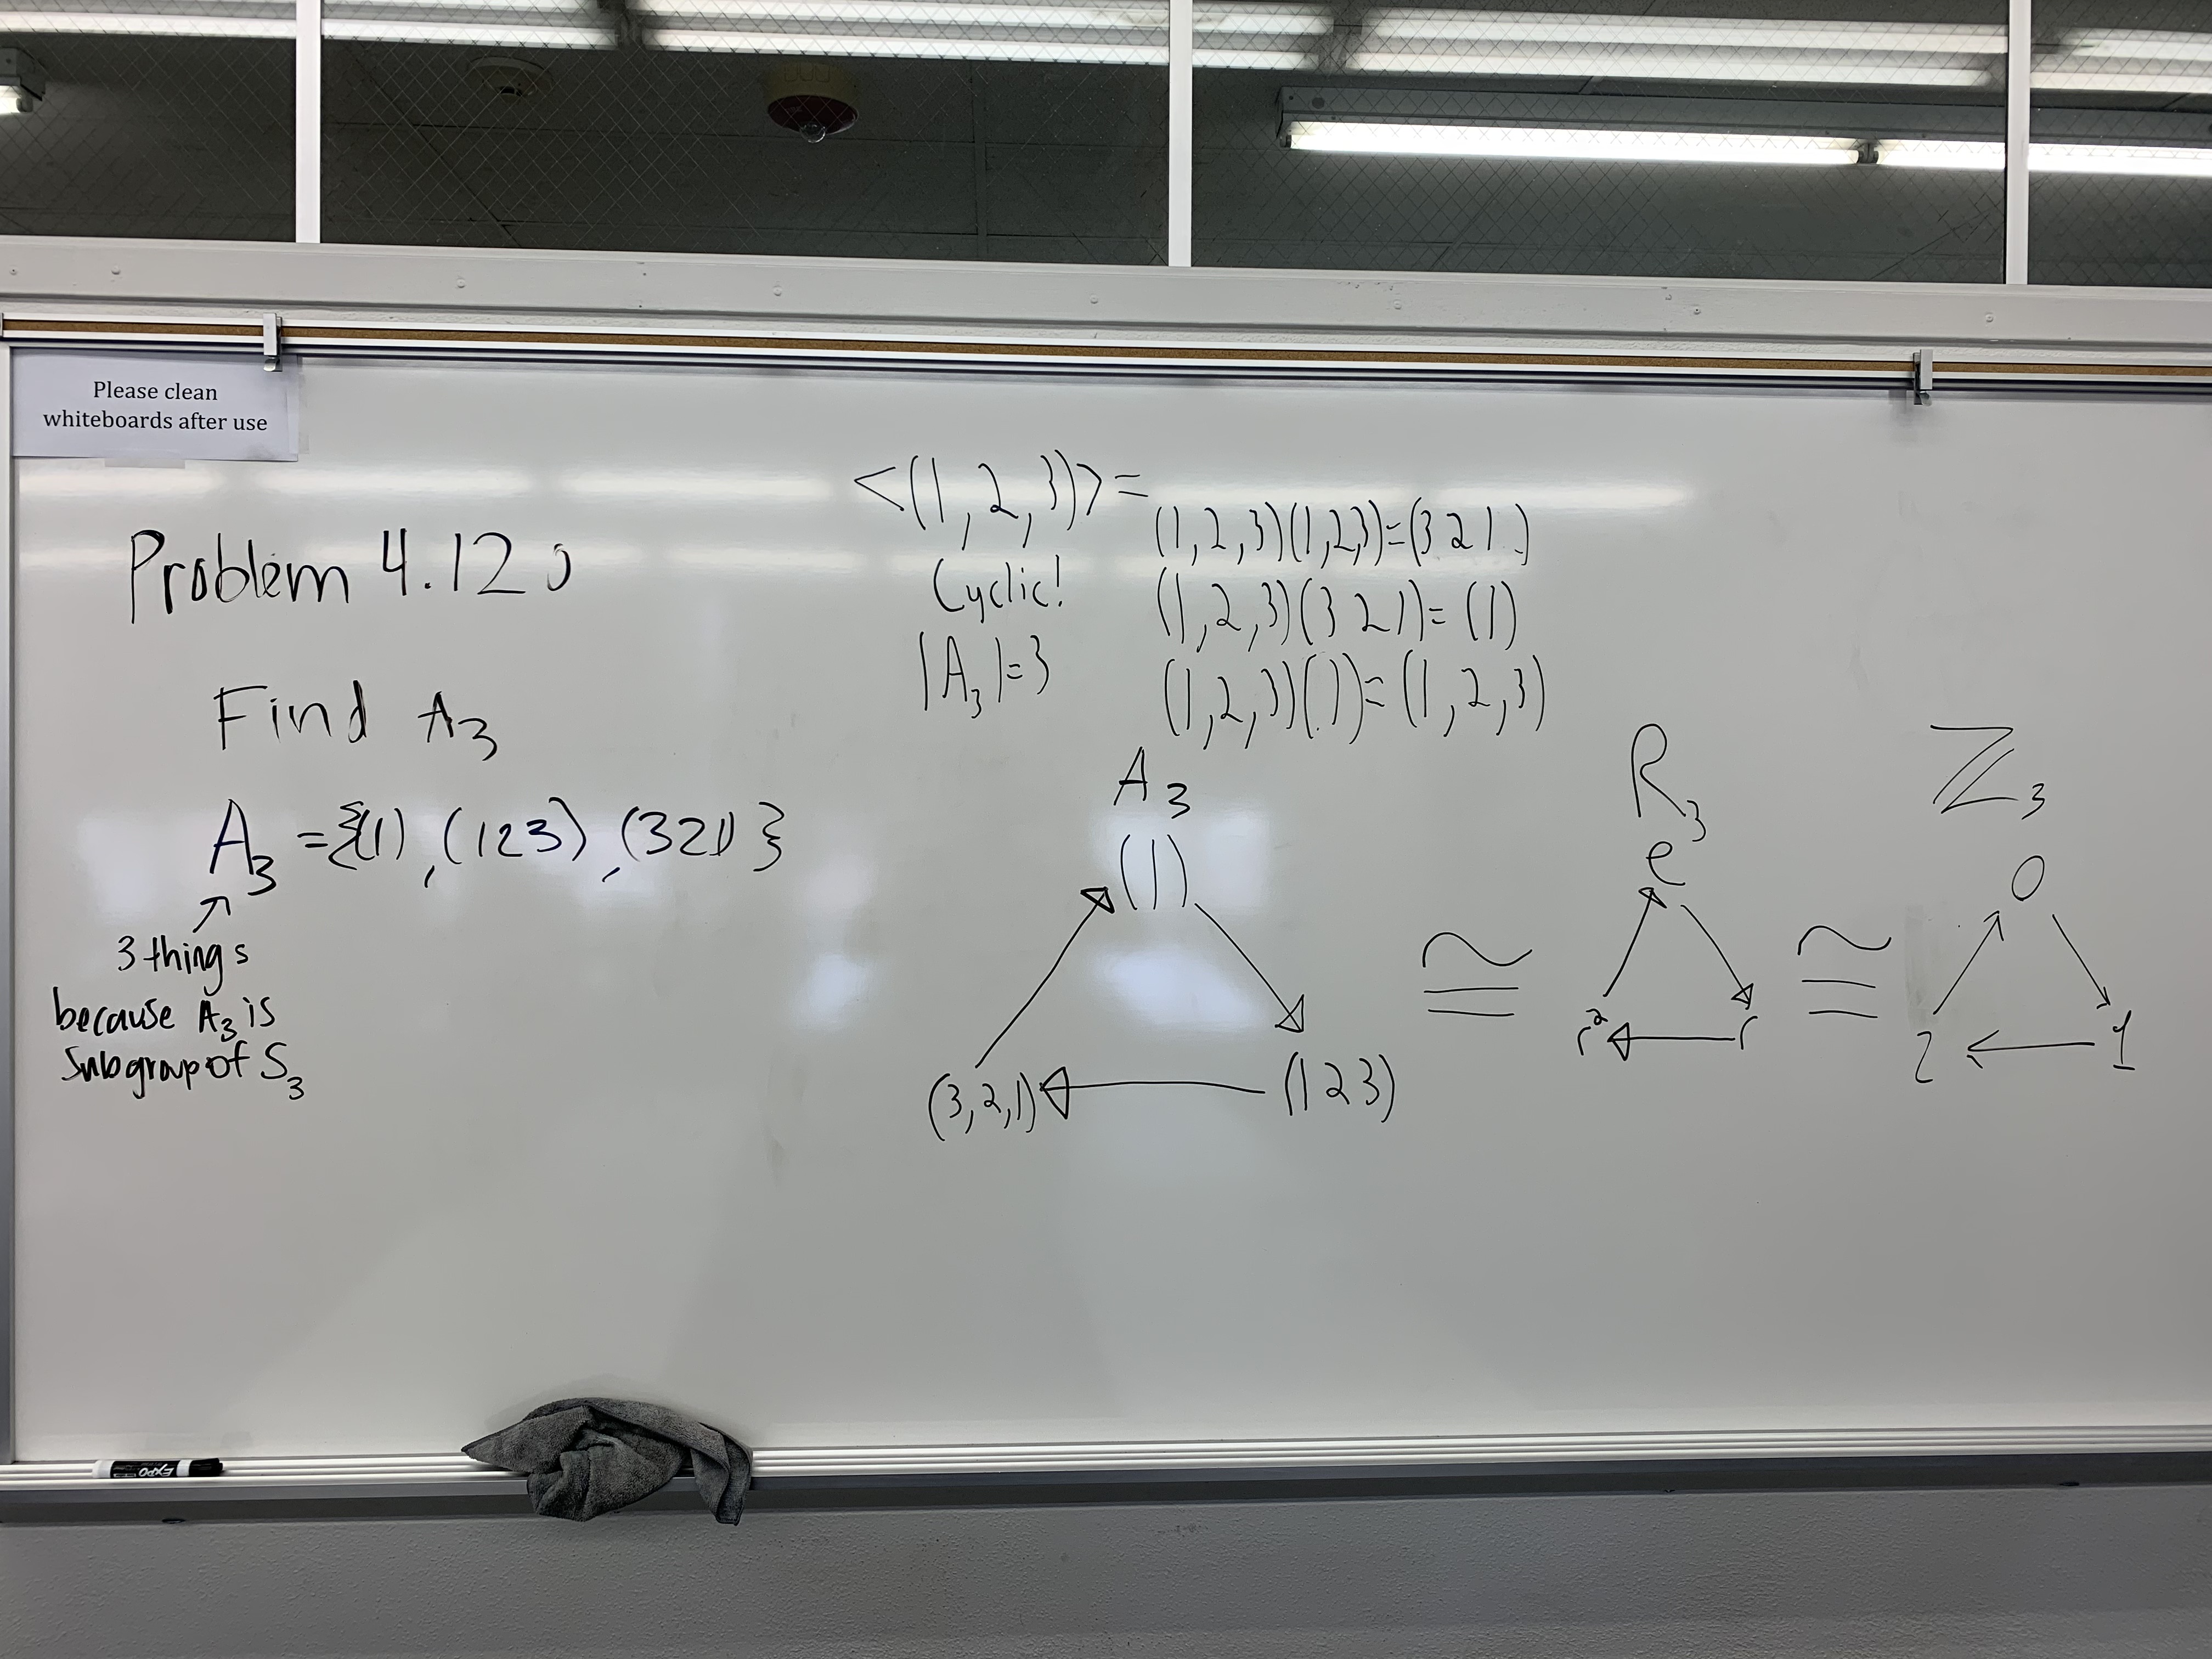 Please clean
whiteboards after use
Problem 4.120
Find A₃
A₃ = {(1), (123), (321)}
3 things
because A₃ is
subgroup of S₃
<(1,2,3)> =
Cyclic!
|A₃|=3
(1,2,3)(1,2,3)=(3 2 1)
(1,2,3)(3 2 1)=(1)
(1,2,3)(1)=(1,2,3)
A₃
(1)
(3,2,1)
(1 2 3)
≅
R₃
e
r²
r
≅
ℤ₃
0
2
1
EXPO